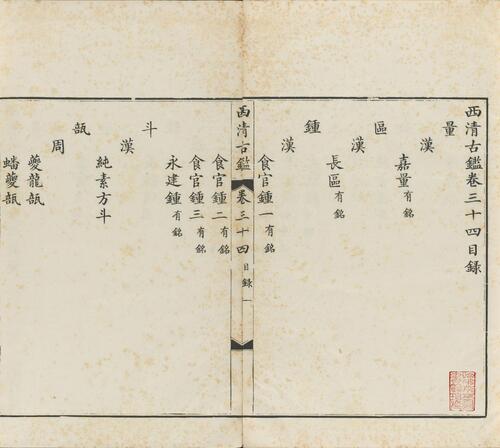 西清古鑑卷三十四目録
量
漢
嘉量有銘
區
漢
長區有銘
鍾
漢
食官鍾一有銘
西清古鑑 卷三十四 目録 一
食官鍾二有銘
食官鍾三有銘
永建鍾有銘
斗
漢
純素方斗
瓿
周
夔龍瓿
蟠夔瓿